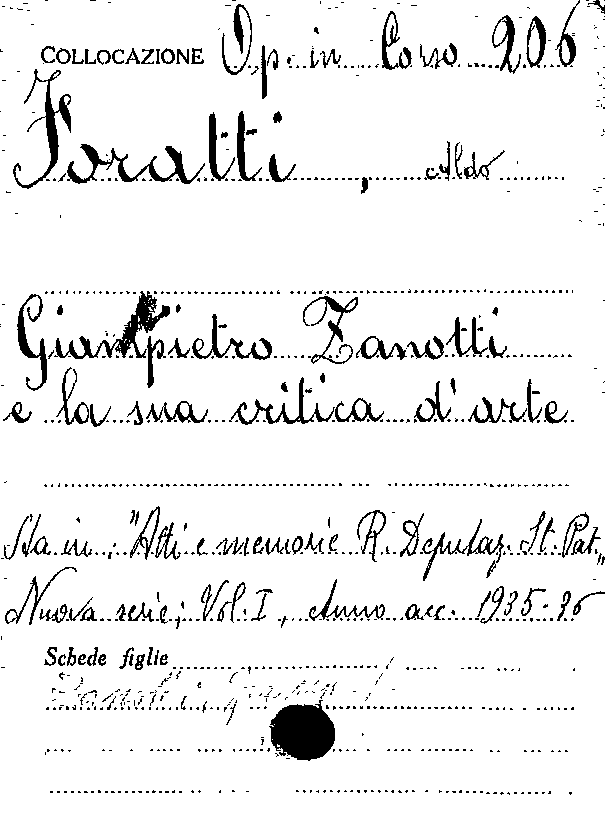 COLLOCAZIONE Op. in Corso 206
Foratti, Aldo
Giampietro Zanotti
e la sua critica d'arte
Sta in: "Atti e memorie R. Deputaz. St. Pat."
Nuova serie; Vol. I, Anno acc. 1935-36
Schede figlie
Zanotti,